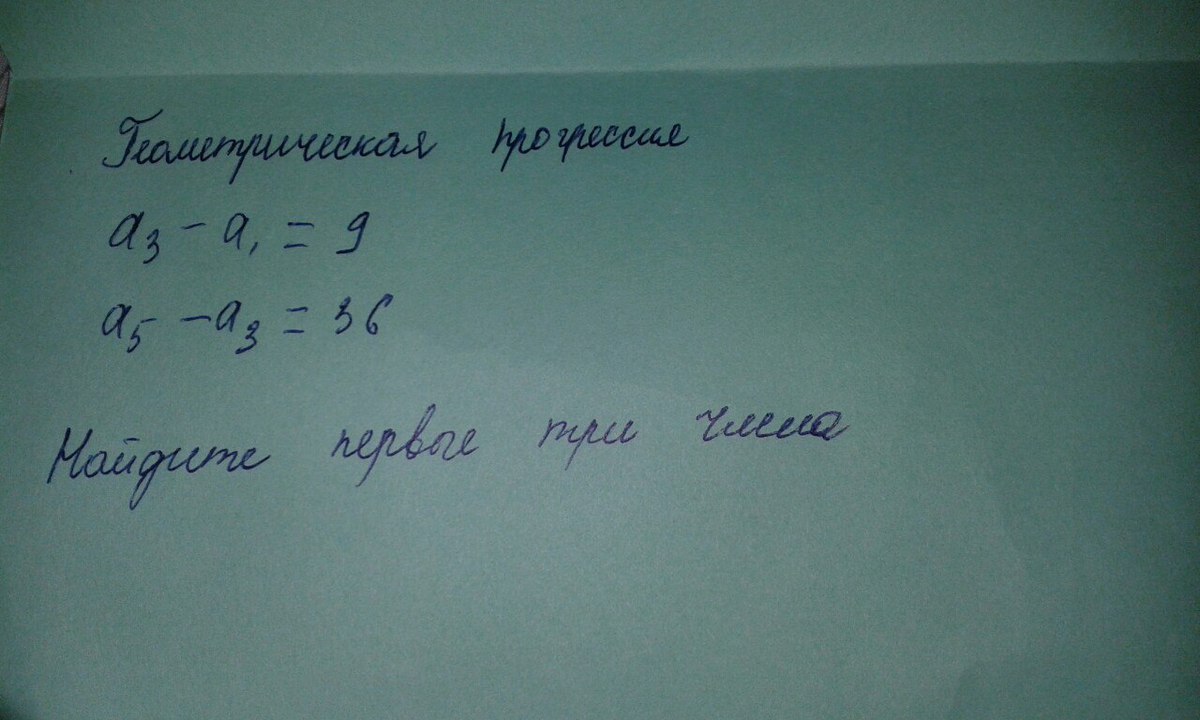 Геометрическая прогрессия
a₃ - a₁ = 9
a₅ - a₃ = 36
Найдите первые три числа